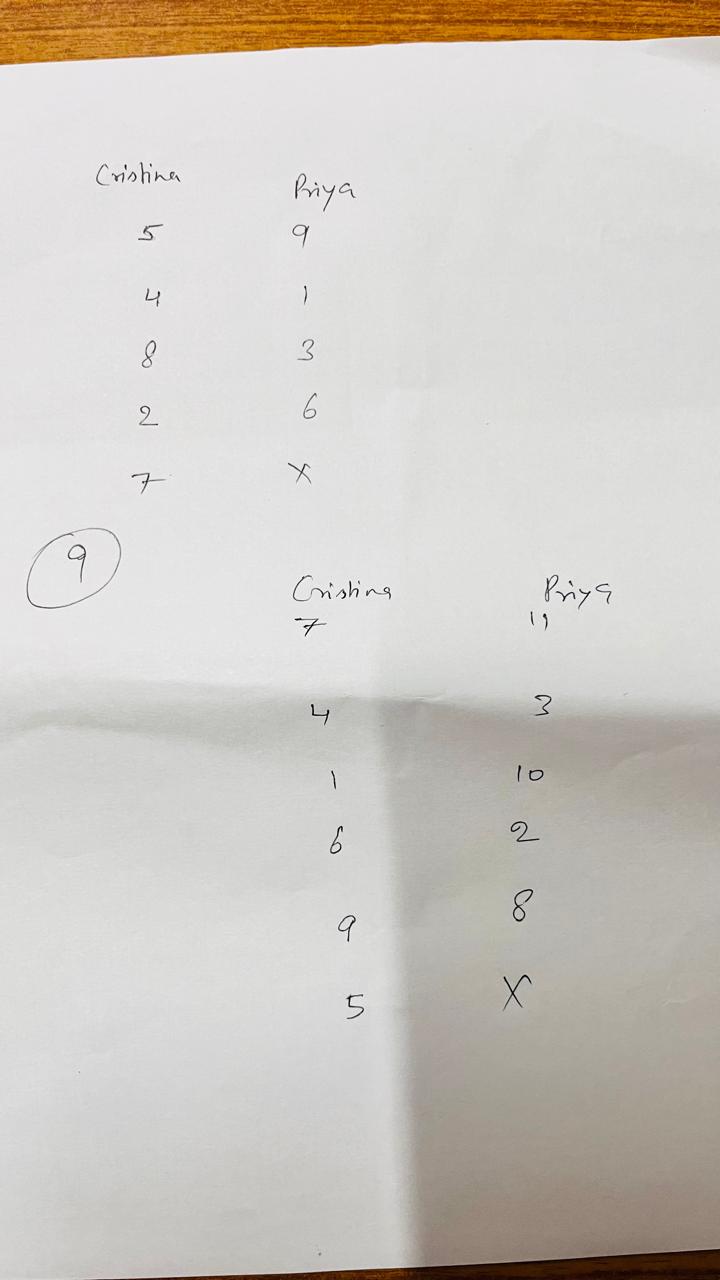 Cristina Priya
5 9
4 1
8 3
2 6
7 X
9
Cristina Priya
7 11
4 3
1 10
6 2
9 8
5 X